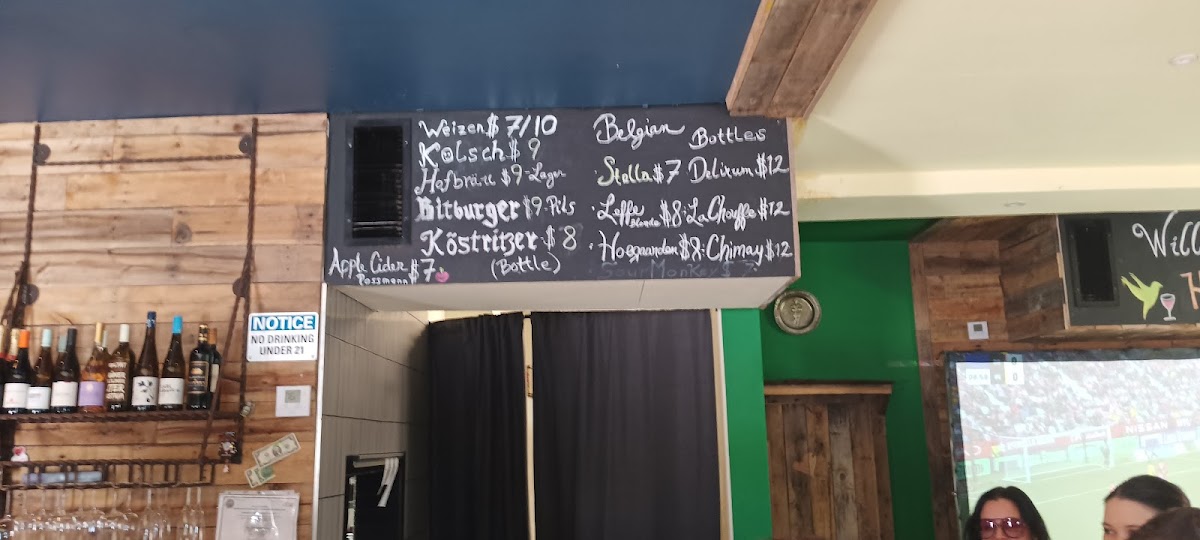 Weizen $ 7/10
Kolsch $ 9
Hofbräu $9-Lager
Bitburger $9-Pils
Köstritzer $ 8
(Bottle)
Apple Cider $7
Possmann
Belgian Bottles
· Stella $7 Delirium $12
· Leffe Blonde $8 · La Chouffe $12
· Hoegaarden $8 · Chimay $12
Sour Monkey $ 7
NOTICE
NO DRINKING
UNDER 21
Will
H
NISSAN
0
0